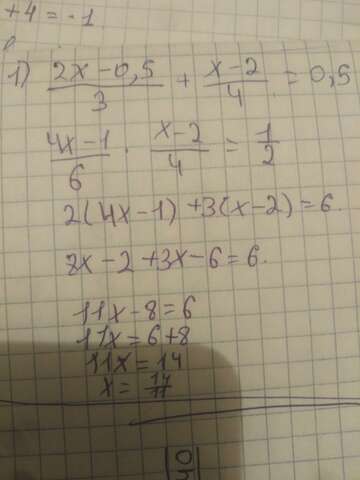 +4 = -1
1) (2x-0,5)/3 + (x-2)/4 = 0,5
(4x-1)/6 · (x-2)/4 = 1/2
2(4x-1) +3(x-2) = 6.
8x - 2 + 3x - 6 = 6.
11x - 8 = 6
11x = 6+8
11x = 14
x = 14/11